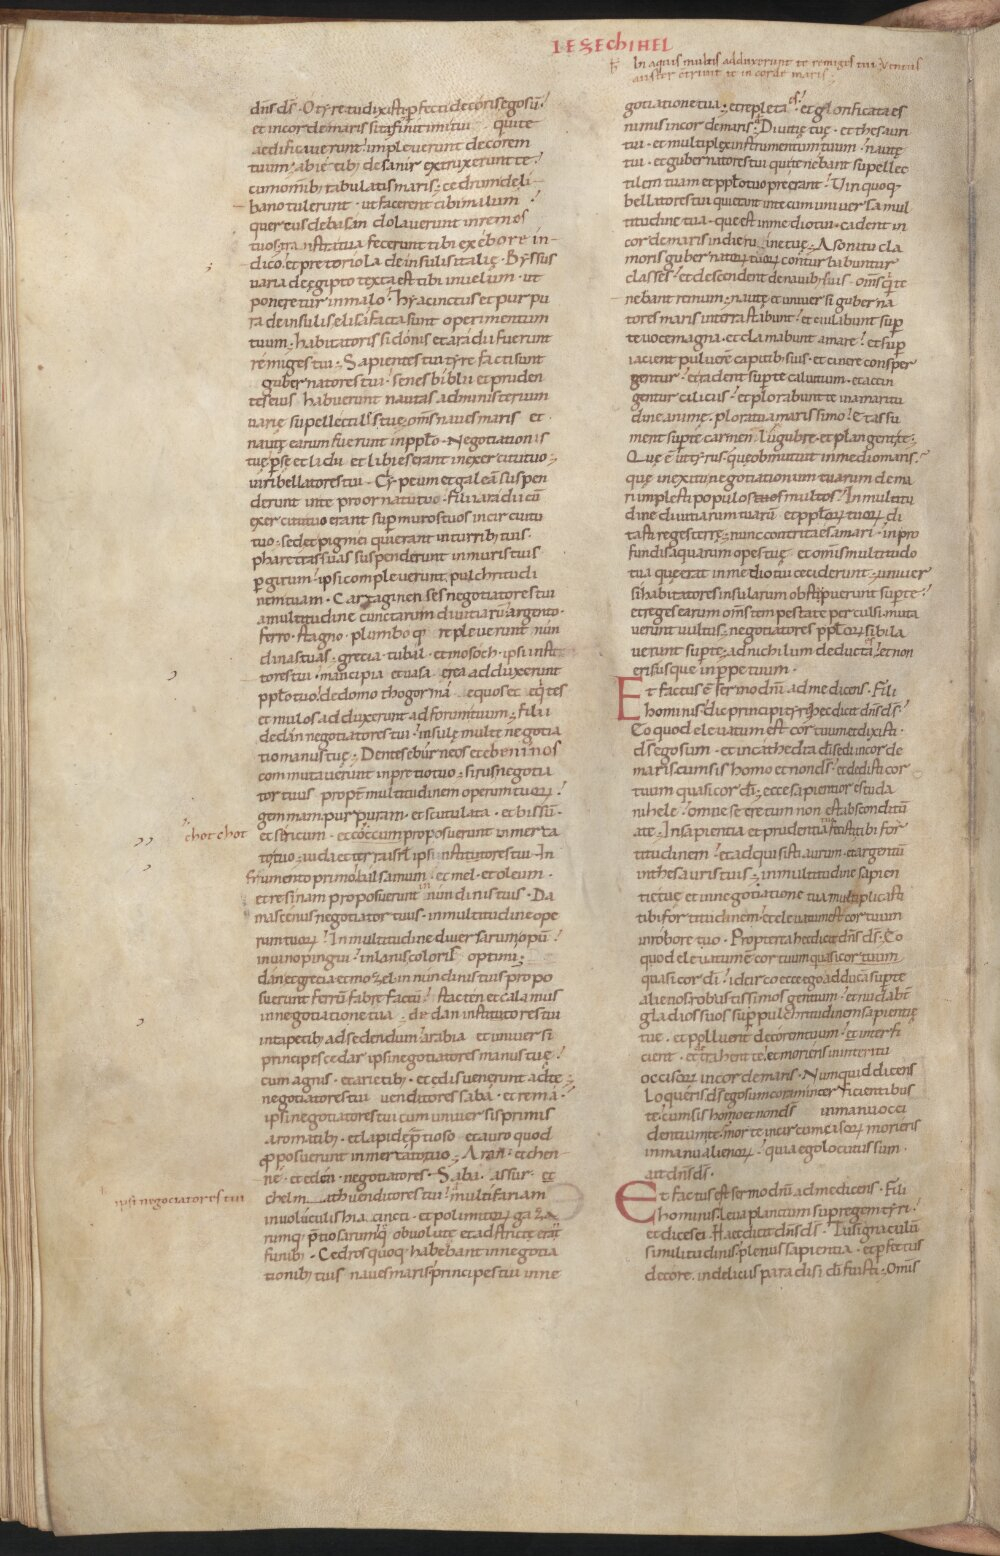 IEZECHIHEL
In aquis multis adduxerunt te remiges tui ventus
auster contrivit te in corde maris
dns ds. O tyre tu dixisti perfecti decoris ego sum
et in corde maris sita finitimi tui qui te
aedificaverunt impleverunt decorem
tuum abietib; de sanir extruxerunt te
cum omnib; tabulatis maris cedrum de li
bano tulerunt ut facerent tibi malum
quercus de basan dolaverunt in remos
tuos transtra tua fecerunt tibi ex ebore in
dico et pretoriola de insulis italie. Byssus
varia de egipto texta est tibi in velum ut
poneretur in malo. hyacinctus et purpu
ra de insulis elisa facta sunt operimentum
tuum. habitatoris sidonis et aradii fuerunt
remiges tui. Sapientes tui tyre facti sunt
gubernatores tui. senes biblii et pruden
tes eius habuerunt nautas ad ministerium
varie supellectilis tue. oms naves maris et
naute earum fuerunt in pplo negotiationis
tue. perse et lidii et libies erant in exercitu tuo
viri bellatores tui. Clypeum et galeam suspen
derunt in te pro ornatu tuo. filii aradii cu
exercitu tuo erant super muros tuos in circuitu
tuo. sed et pigmei qui erant in turrib; tuis
pharetras suas suspenderunt in muris tuis
per girum. ipsi compleverunt pulchritudi
nem tuam. Cartaginenses negotiatores tui
a multitudine cunctarum divitiarum argento
ferro. stagno. plumboq; repleverunt nun
dinas tuas. grecia. tubal et mosoch ipsi institu
tores tui. mancipia et vasa erea adduxerunt
pplo tuo. de domo thogorma equos et eqtes
et mulos adduxerunt ad forum tuum. filii
dedan negotiatores tui. insule multe negotia
tio manus tue. Dentes eburneos et ebeninos
commutaverunt in pretio tuo. sirus negotia
tor tuus propt multitudinem operum tuorum
gemmam purpuram et scutulata et bissum
et sericum et coccum proposuerunt in merca
chotchot
to tuo. iuda et terra isrl ipsi institutores tui. In
frumento primo balsamum et mel et oleum
et resinam proposuerunt in nundinis tuis. Da
mascenus negotiator tuus in multitudine ope
rum tuorum. In multitudine diversarum opum
in vino pingui in lanis coloris optimi.
dan et grecia et mozel in nundinis tuis propo
suerunt ferrum fabre factum. stacten et calamus
in negotiatione tua. dedan institutores tui
in tapetib; ad sedendum. arabia et universi
principes cedar ipsi negotiatores manus tue
cum agnis et arietib; et edis venerunt ad te
negotiatores tui venditores saba et rema
ipsi negotiatores tui cum universis primis
aromatib; et lapide ptioso et auro quod
proposuerunt in mercato tuo. Aran et chen
ne et eden negotiatores. Saba. assur et
ipsi negociatores tui
chelmath venditores tui multifariam
involuculis hiacincti et polimitorum gaza
rumq; ptiosarum que obvolute et adstricte erant
funib;. Cedros quoq; habebant in negotia
tionib; tuis naves maris principes tui in ne
gotiatione tua. et repleta es et glorificata es
nimis in corde maris. Divitie tue et thesauri
tui et multiplex instrumentum tuum naute
tui et gubernatores tui qui tenebant supellec
tilem tuam et pplo tuo preerant. Viri quoq;
bellatores tui qui erant in te cum universa mul
titudine tua que est in medio tui cadent in
corde maris in die ruine tue. A sonitu cla
moris gubernatorum tuorum conturbabuntur
classes et descendent de navib; suis oms q te
nebant remum. naute et universi guberna
tores maris in terra stabunt et eiulabunt sup
te voce magna et clamabunt amare et sup
iacient pulverem capitib; suis et cinere consper
gentur et radent super te calvitium et accin
gentur cilicus et plorabunt te in amaritu
dine anime. ploratu amarissimo et assu
ment super te carmen lugubre et plangent te.
Que e ut tyrus que obmutuit in medio maris
que in exitu negotiationum tuarum de ma
ri implesti populos tuos multos. In multitu
dine divitiarum tuarum et pplorum tuorum di
tasti reges terre. nunc contrita es a mari in pro
fundis aquarum opes tue et omis multitudo
tua que erat in medio tui ceciderunt. univer
si habitatores insularum obstipuerunt super te
et reges earum oms tempestate perculsi muta
verunt vultus. negotiatores pplorum sibila
verunt super te. ad nichilum deducta es et non
eris usque in perpetuum.
Et factus e sermo dni ad me dicens. Fili
hominis dic principi tyri hec dicit dns ds.
Eo quod elevatum est cor tuum et dixisti
ds ego sum et in cathedra di sedi in corde
maris cum sis homo et non ds et dedisti cor
tuum quasi cor di. ecce sapientior es tu da
nihele omne secretum non est absconditum
a te. In sapientia et prudentia tua fecisti tibi for
titudinem et adquisisti aurum et argentum
in thesauris tuis. in multitudine sapien
tie tue et in negotiatione tua multiplicasti
tibi fortitudinem et elevatum est cor tuum
in robore tuo. Propterea hec dicit dns ds. Eo
quod elevatum e cor tuum quasi cor tuum
quasi cor di idcirco ecce ego adducam super te
alienos robustissimos gentium et nudabt
gladios suos super pulchritudinem sapientie
tue et polluent decorem tuum et interfi
cient et detrahent te et morieris in interitu
occisorum in corde maris. Numquid dicens
loqueris ds ego sum coram interficientibus
te. cum sis homo et non ds in manu occi
dentium te. morte incircumcisorum morieris
in manu alienorum quia ego locutus sum
ait dns ds.
Et factus est sermo dni ad me dicens. Fili
hominis leva planctum sup regem tyri
et dices ei. Haec dicit dns ds. Tu signaculum
similitudinis plenus sapientia et perfectus
decore in deliciis paradisi di fuisti. Omis